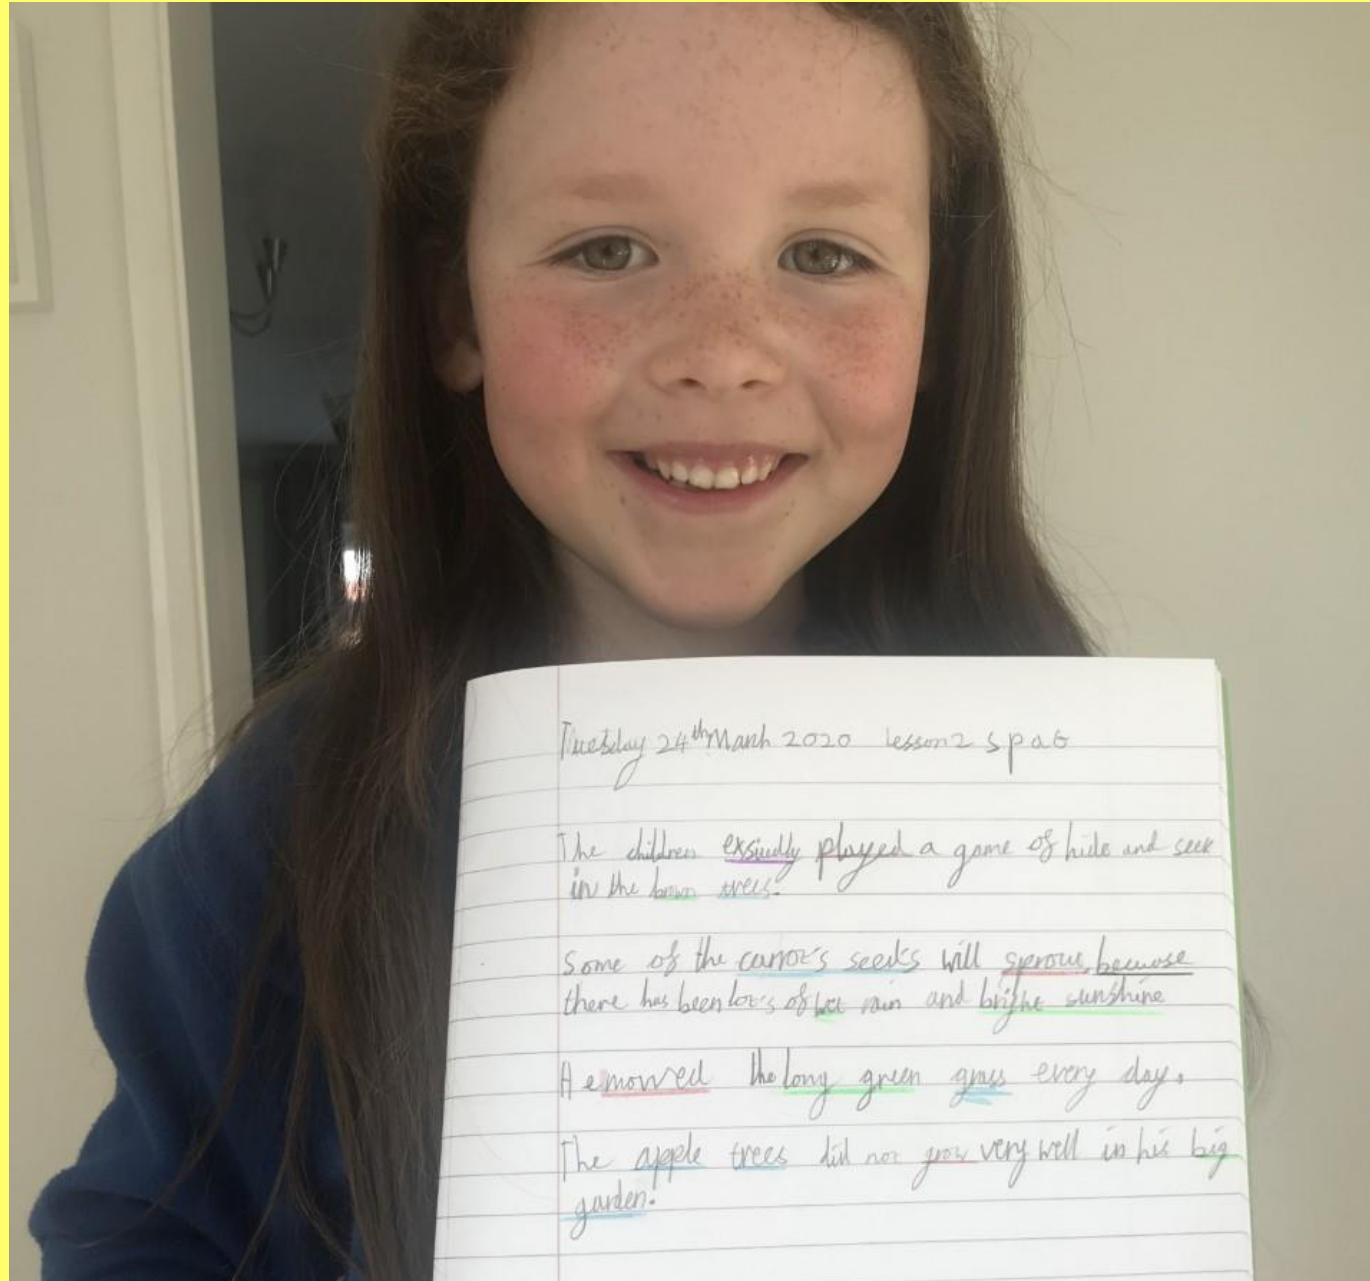 Tuesday 24th March 2020 lesson 2 spaG
The children exsiuedly played a game of hide and seek
in the brown trees.
Some of the carrots seeds will sprout, because
there has been lots of wet rain and bright sunshine
He mowed the long green grass every day.
The apple trees did not grow very well in his big
garden.